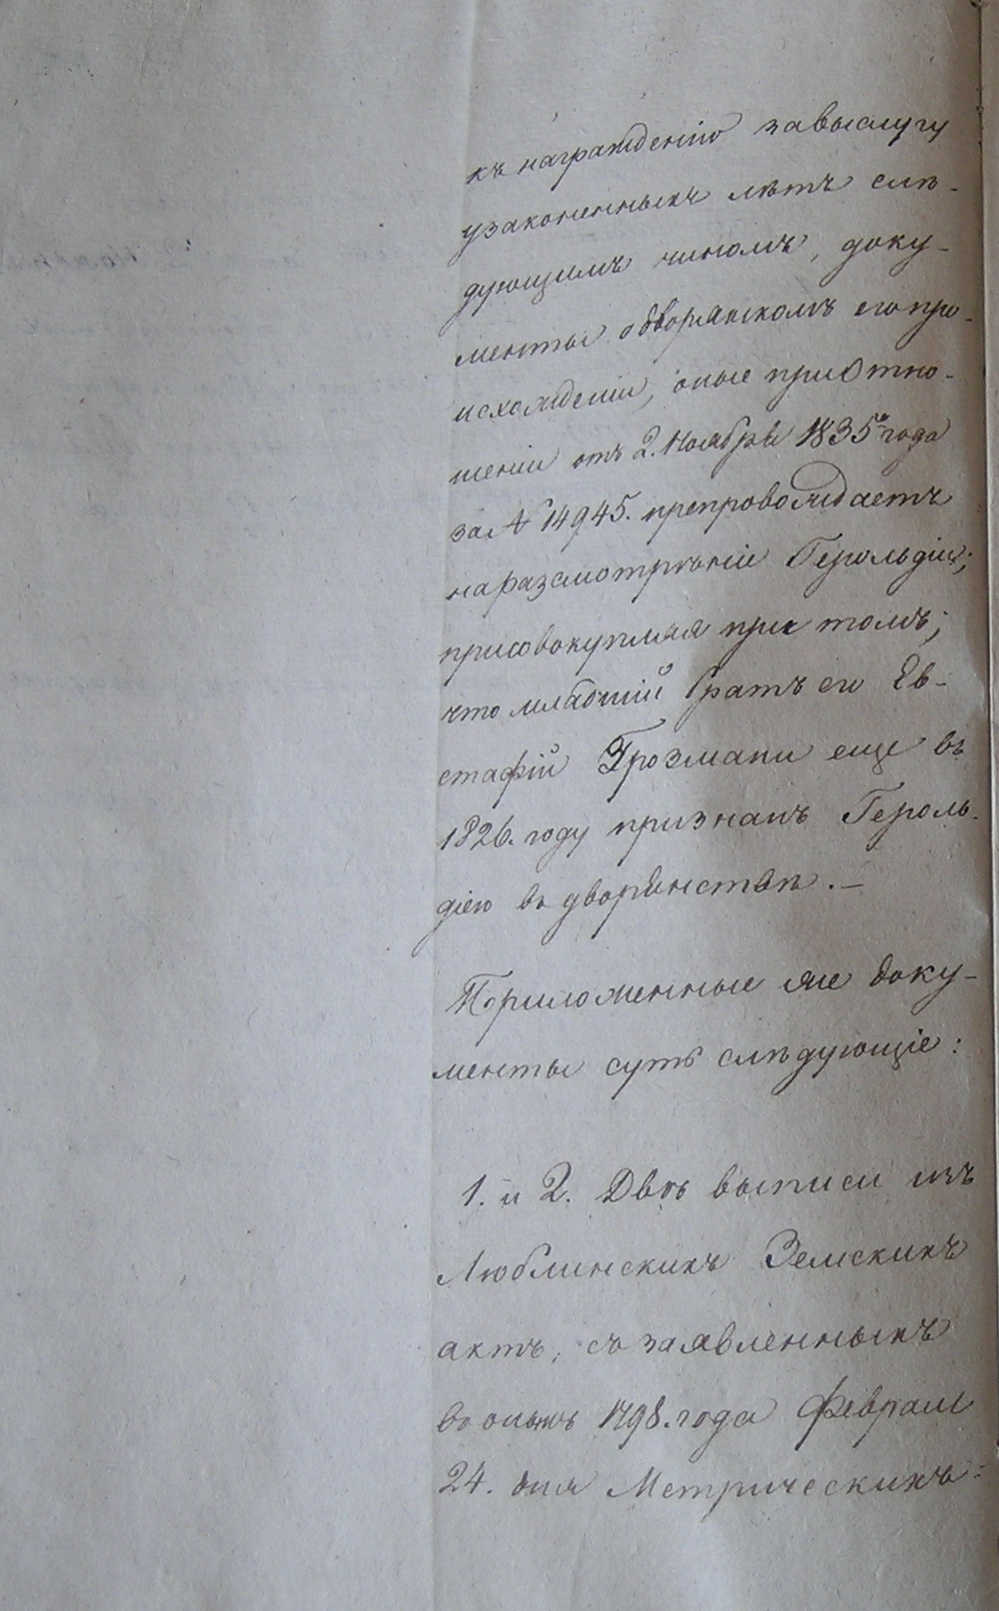 къ награжденію завыслугу
узаконенныхъ лѣтъ слѣ-
дующимъ чиномъ, доку-
менты о дворянскомъ его про-
исхожденіи, оные при отно-
шеніи отъ 2. Ноября 1835 года
за № 14945. препровождаетъ
на разсмотрѣніе Герольдіи;
присовокупляя при томъ,
что младшій братъ его Ев-
стафій Грозмани еще въ
1826. году признанъ Героль-
діею въ дворянствѣ. —
Приложенные же доку-
менты суть слѣдующіе:
1. и 2. Двѣ выписи изъ
Люблинскихъ Земскихъ
актъ, съ заявленныхъ
въ оныхъ 1798. года Февраля
24. дня Метрическихъ